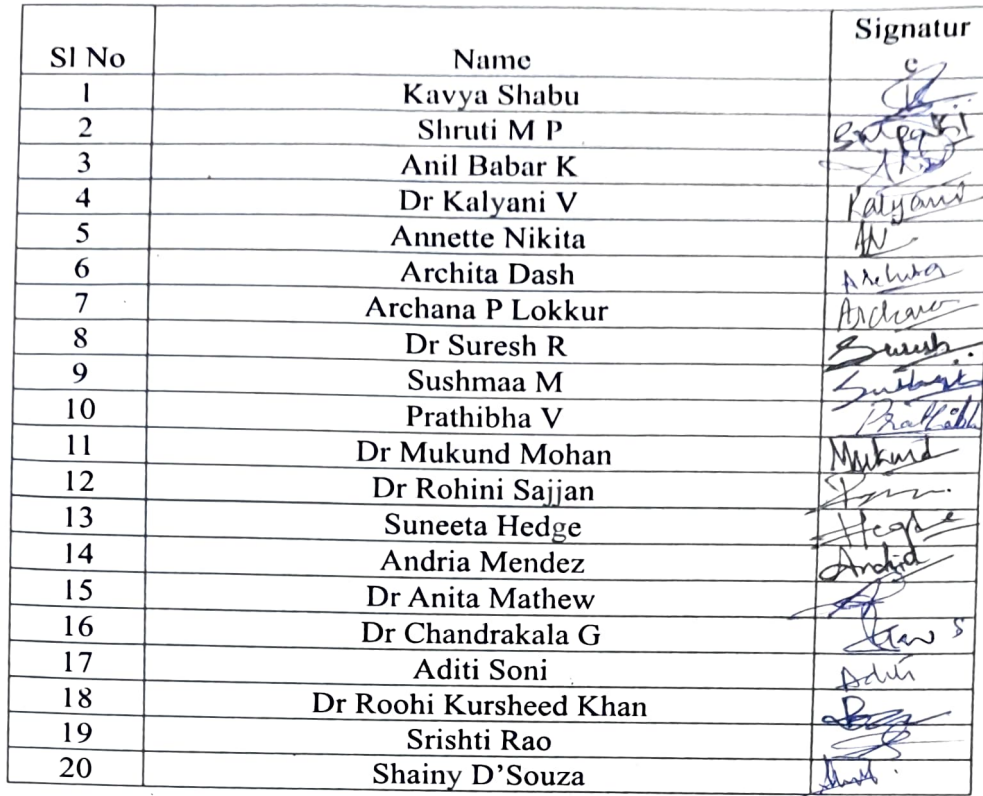 Sl No Name Signatur
e
1 Kavya Shabu
2 Shruti M P
3 Anil Babar K
4 Dr Kalyani V Kalyani
5 Annette Nikita AN
6 Archita Dash Archita
7 Archana P Lokkur Archana
8 Dr Suresh R Suresh
9 Sushmaa M
10 Prathibha V Prathibh
11 Dr Mukund Mohan Mukund
12 Dr Rohini Sajjan
13 Suneeta Hedge Hegde
14 Andria Mendez Andria
15 Dr Anita Mathew
16 Dr Chandrakala G
17 Aditi Soni Aditi
18 Dr Roohi Kursheed Khan
19 Srishti Rao
20 Shainy D'Souza